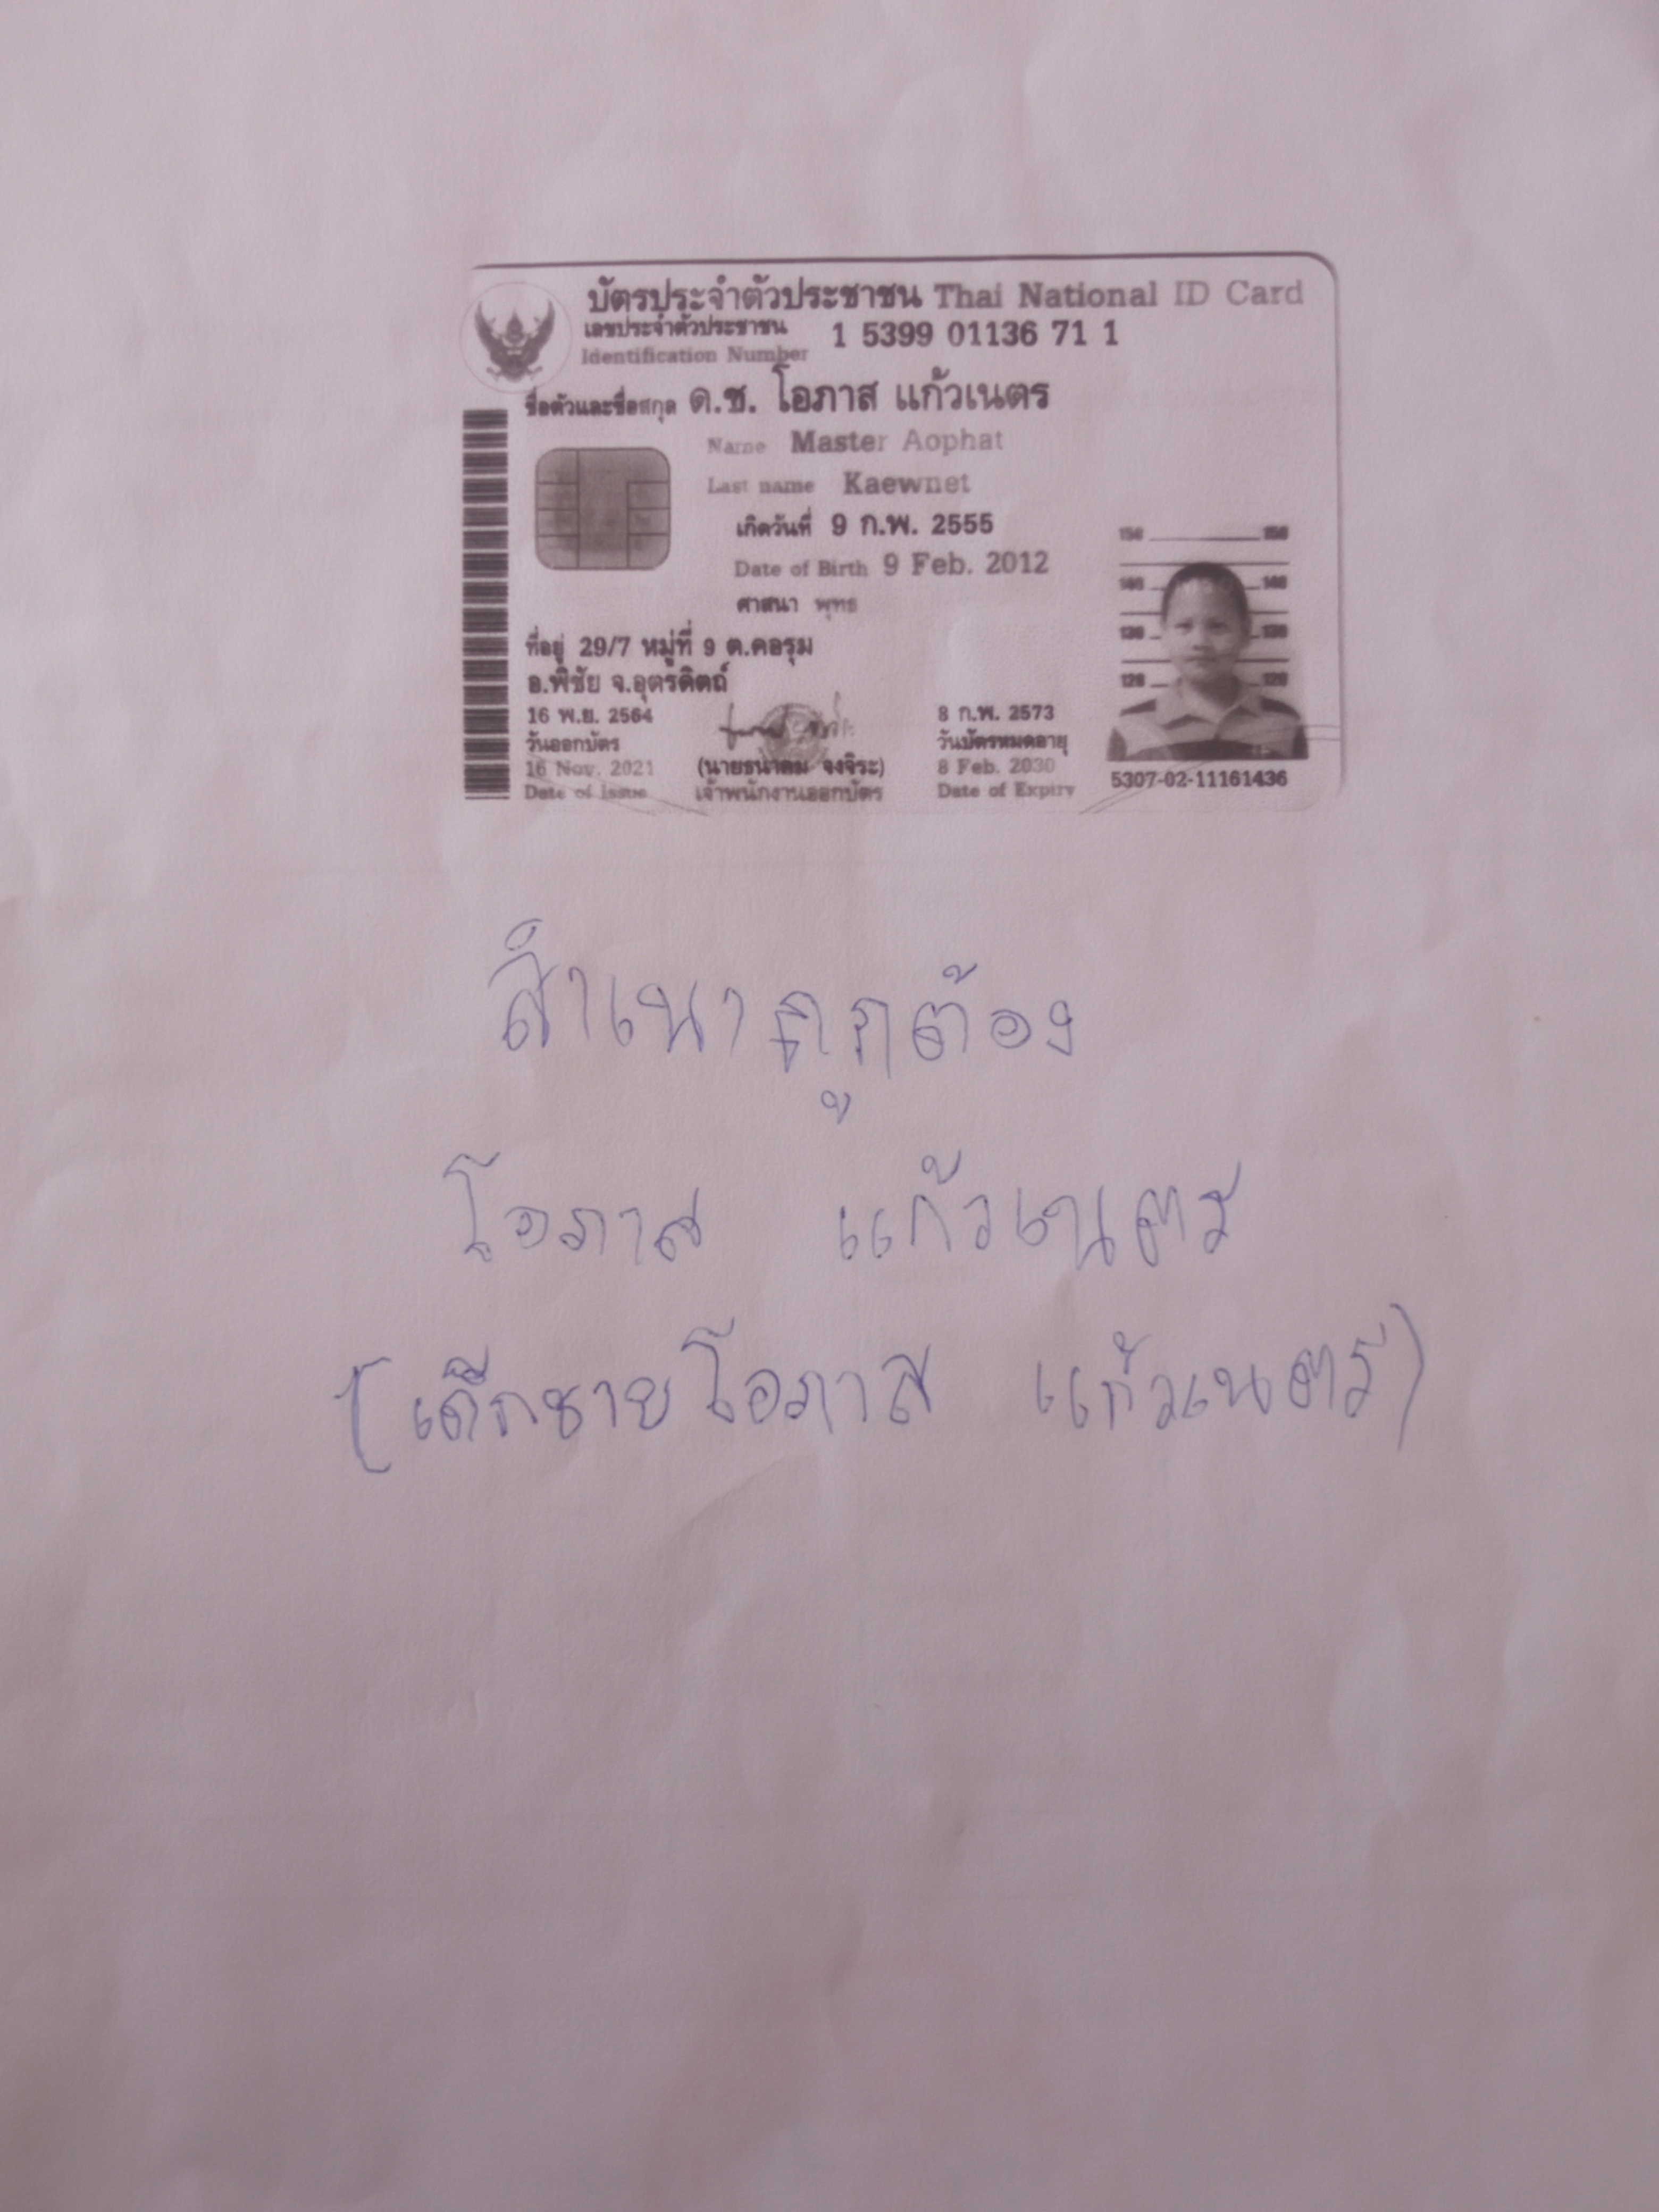 บัตรประจำตัวประชาชน Thai National ID Card
เลขประจำตัวประชาชน 1 5399 01136 71 1
Identification Number
ชื่อตัวและชื่อสกุล ด.ช. โอภาส แก้วเนตร
Name Master Aophat
Last name Kaewnet
เกิดวันที่ 9 ก.พ. 2555
Date of Birth 9 Feb. 2012
ศาสนา พุทธ
150 150
140 140
130 130
120 120
ที่อยู่ 29/7 หมู่ที่ 9 ต.คอรุม
อ.พิชัย จ.อุตรดิตถ์
16 พ.ย. 2564
วันออกบัตร
16 Nov. 2021
Date of Issue
(นายธนาคม จงจิระ)
เจ้าพนักงานออกบัตร
8 ก.พ. 2573
วันบัตรหมดอายุ
8 Feb. 2030
Date of Expiry
5307-02-11161436
สำเนาถูกต้อง
โอภาส แก้วเนตร
(เด็กชายโอภาส แก้วเนตร)